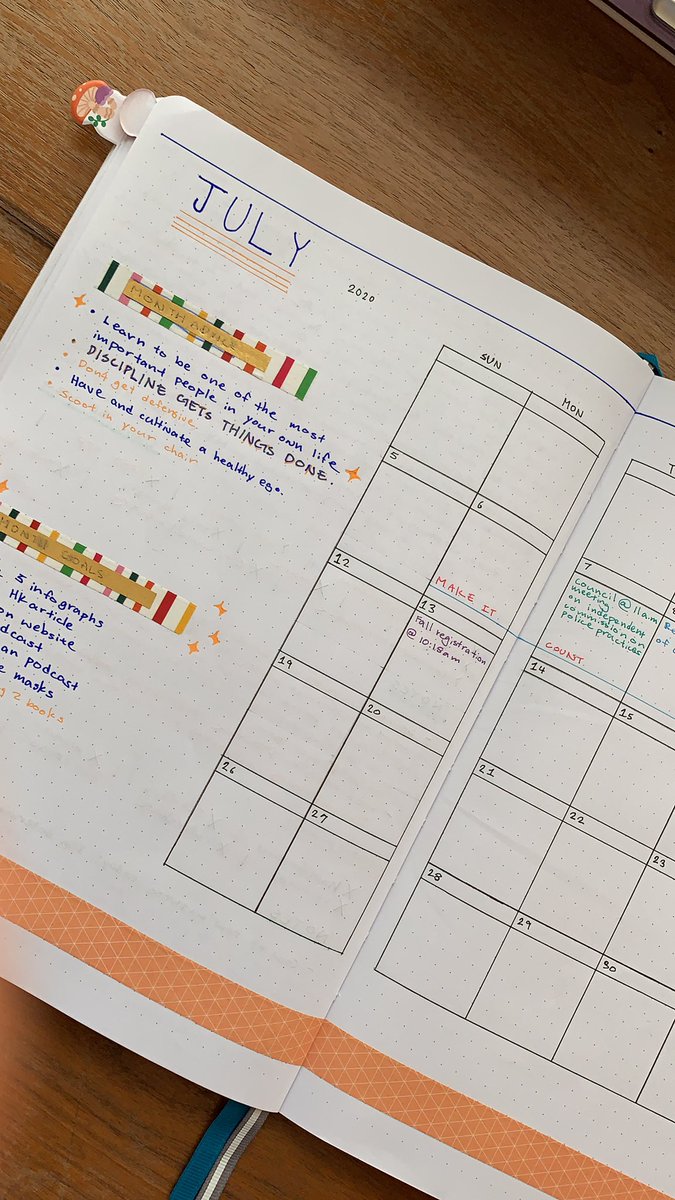 JULY
2020
MONTH ADVICE
• Learn to be one of the most
important people in your own life
• DISCIPLINE GETS THINGS DONE.
• Don't get defensive.
• Have and cultivate a healthy ego.
• Scoot in your chair
MONTH GOALS
5 infographs
HK article
on website
podcast
an podcast
masks
2 books
SUN
MON
5
6
7
council @ 11am
meeting
on independent
commission on
police practices
of
MAKE IT
COUNT.
12
13
Fall registration
@ 10:15am
14
15
19
20
21
22
23
26
27
28
29
30